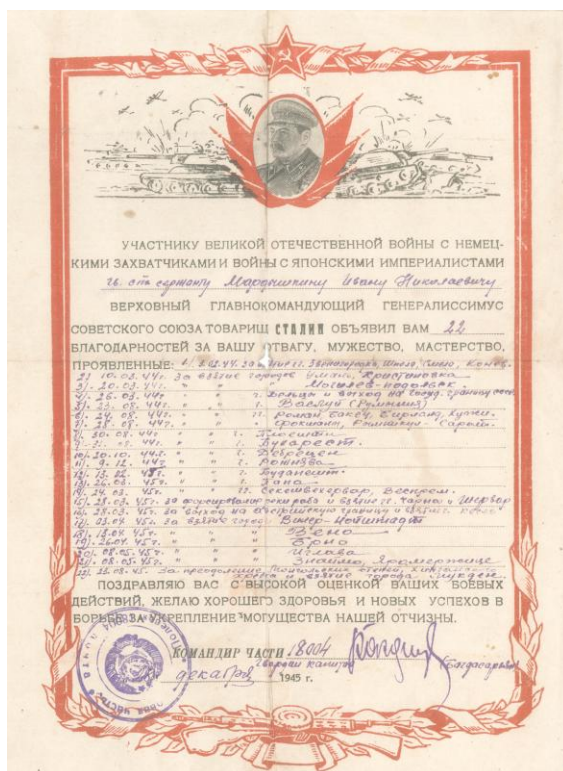 УЧАСТНИКУ ВЕЛИКОЙ ОТЕЧЕСТВЕННОЙ ВОЙНЫ С НЕМЕЦ-
КИМИ ЗАХВАТЧИКАМИ И ВОЙНЫ С ЯПОНСКИМИ ИМПЕРИАЛИСТАМИ
гв. ст. сержанту Ивану Николаевичу
ВЕРХОВНЫЙ ГЛАВНОКОМАНДУЮЩИЙ ГЕНЕРАЛИССИМУС
СОВЕТСКОГО СОЮЗА ТОВАРИЩ СТАЛИН ОБЪЯВИЛ ВАМ 22
БЛАГОДАРНОСТЕЙ ЗА ВАШУ ОТВАГУ, МУЖЕСТВО, МАСТЕРСТВО,
ПРОЯВЛЕННЫЕ: Звенигородка, Шпола, Смела,
2). 10.03.44г. за взятие городов Умань, Христиновка
3). 20.03.44г. " " " Могилев-подольск.
4). 26.03.44г. " " г. Бельцы и выход на госуд. границу
5). 23.08.44г. " " г. Васлуй (Румыния)
6). 24.08.44г. " " гг. Роман, Бакеу, Бирлад, Хуши.
7). 28.08.44г. " " " Фокшаны, Рымникул-Сарат.
8). 30.08.44г. " " г. Плоешти
9). 31.08.44г. " " г. Бухарест.
10). 20.10.44г. " " г. Дебрецен
11). 9.12.44г. " " г.
12). 13.02.45г. " " г. Будапешт.
13). 26.03.45г. " " г.
14). 24.03.45г. " " гг. Секешфехервар, Веспрем.
15). 28.03.45г. за форсирование реки раба и взятие гг. Чорна и Шервар
16). 28.03.45г. за выход на австрийскую границу и взятие г.
17). 03.04.45г. за взятие город Винер-Нойштадт
18). 13.04.45г. " " " Вена
19). 26.04.45г. " " " Брно
20). 08.05.45г. " " " Иглава
21). 08.05.45г. " " " Знаймо, Яромержице
22). 23.08.45. За преодоление хребта и взятие города Мукден.
ПОЗДРАВЛЯЮ ВАС С ВЫСОКОЙ ОЦЕНКОЙ ВАШИХ БОЕВЫХ
ДЕЙСТВИЙ. ЖЕЛАЮ ХОРОШЕГО ЗДОРОВЬЯ И НОВЫХ УСПЕХОВ В
БОРЬБЕ ЗА УКРЕПЛЕНИЕ МОГУЩЕСТВА НАШЕЙ ОТЧИЗНЫ.
КОМАНДИР ЧАСТИ 18004
гвардии капитан
декабря 1945 г.